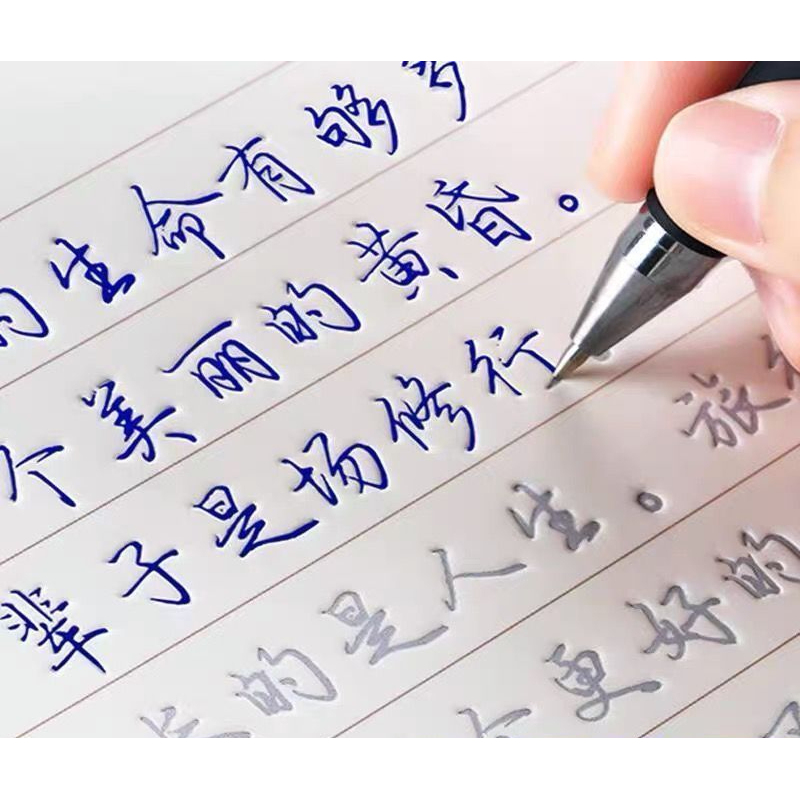 的生命有够多
个美丽的黄昏。
辈子是场修行
长的是人生。旅
个更好的